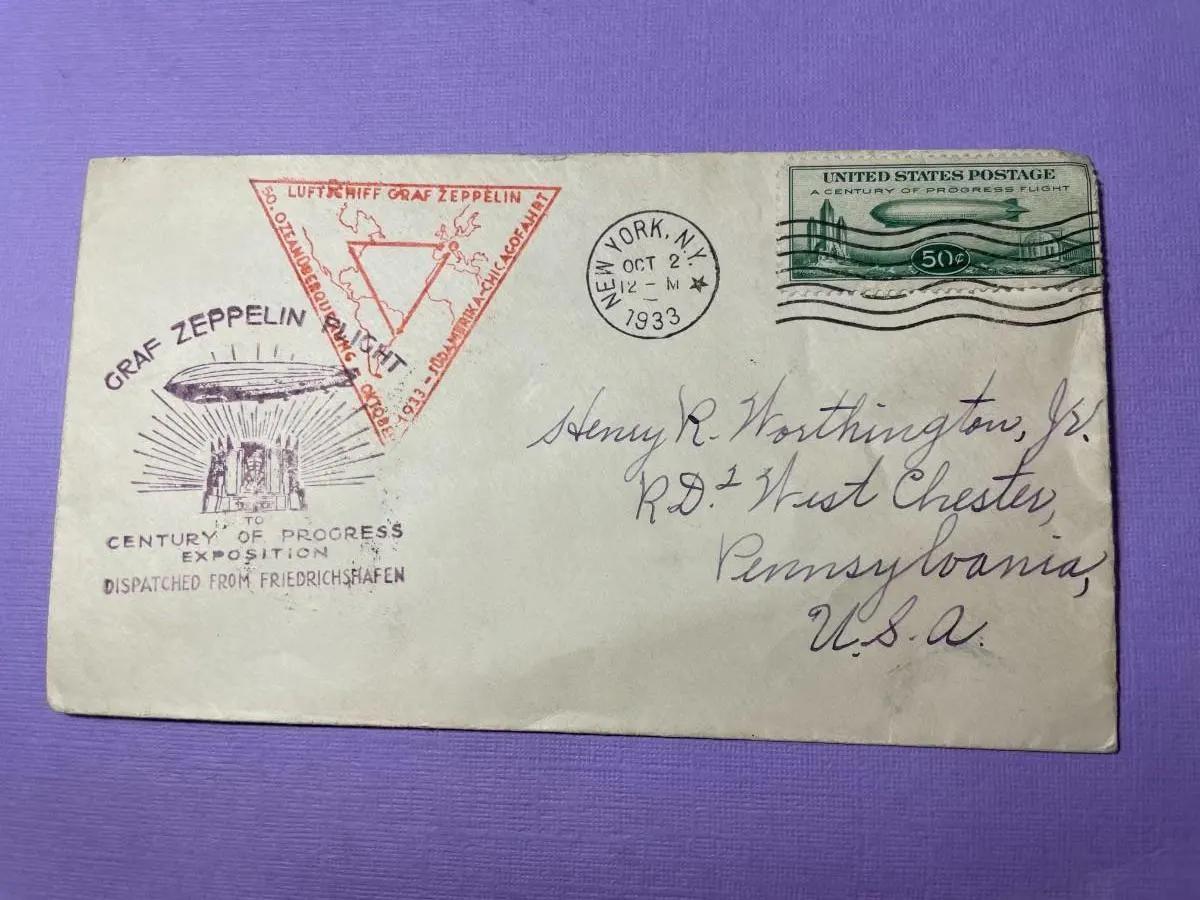 LUFTSCHIFF GRAF ZEPPELIN
50. OZEANÜBERQUERUNG
OKTOBER 1933 - SÜDAMERIKA-CHICAGOFAHRT
NEW YORK, N.Y.
OCT 2
12 - M
1933
UNITED STATES POSTAGE
A CENTURY OF PROGRESS FLIGHT
50¢
GRAF ZEPPELIN FLIGHT
TO
CENTURY OF PROGRESS
EXPOSITION
DISPATCHED FROM FRIEDRICHSHAFEN
Henry R. Worthington, Jr.
R.D. 2 West Chester,
Pennsylvania,
U.S.A.